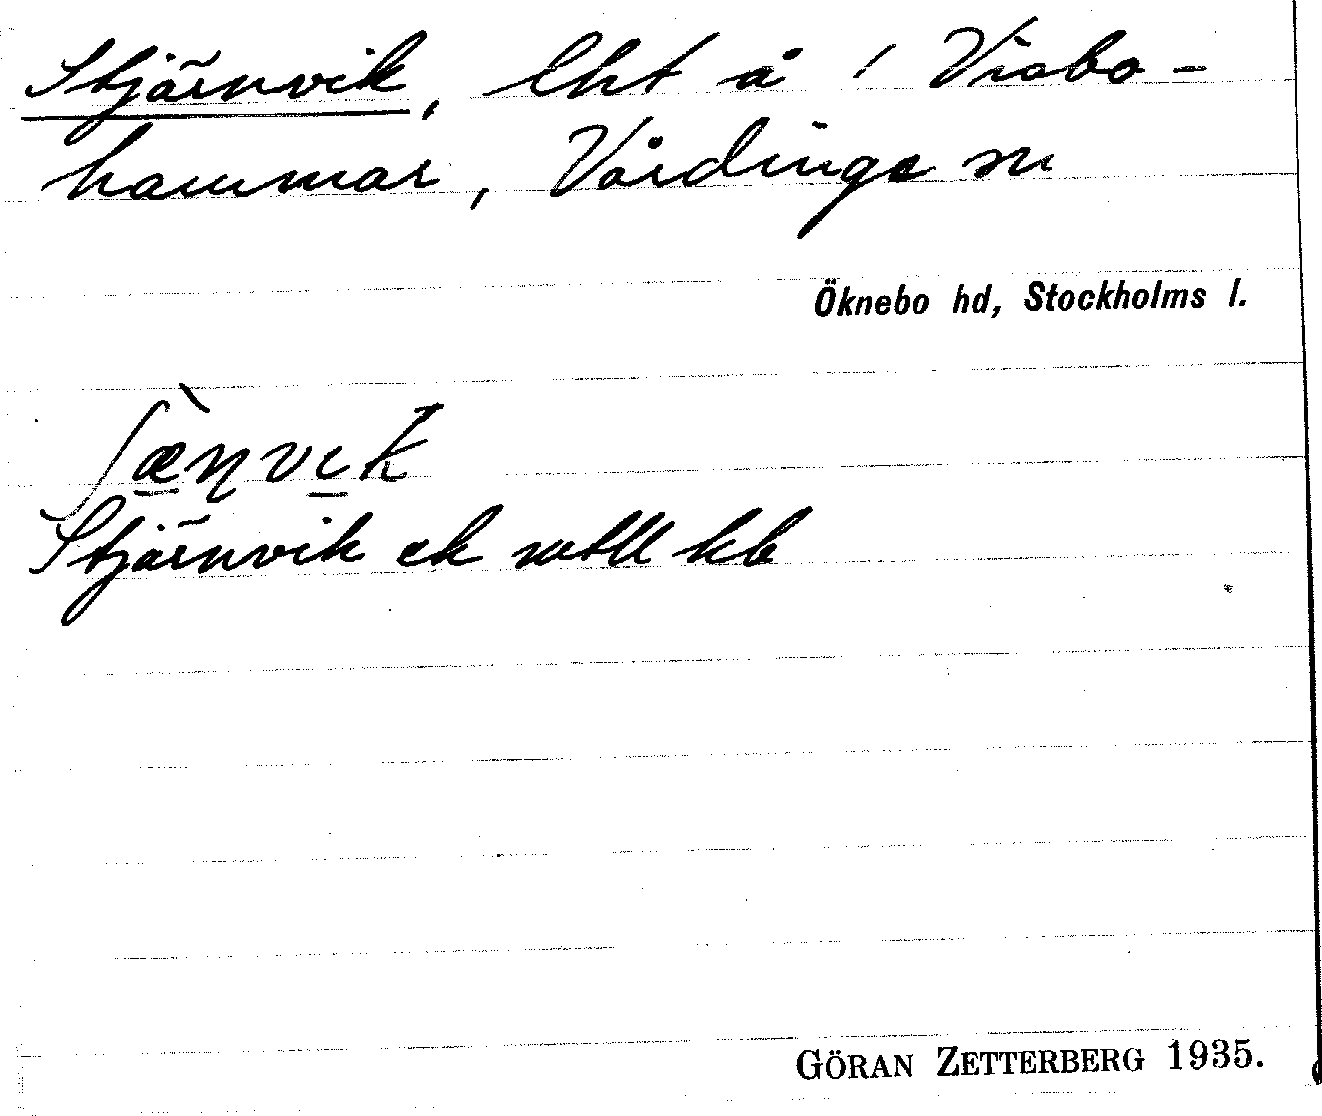 Stjärnvik, lht å / Visbo-
hammar, Vårdinge sn
Öknebo hd, Stockholms l.
ʃæ̀ɳvɪk
Stjärnvik ek kb
GÖRAN ZETTERBERG 1935.